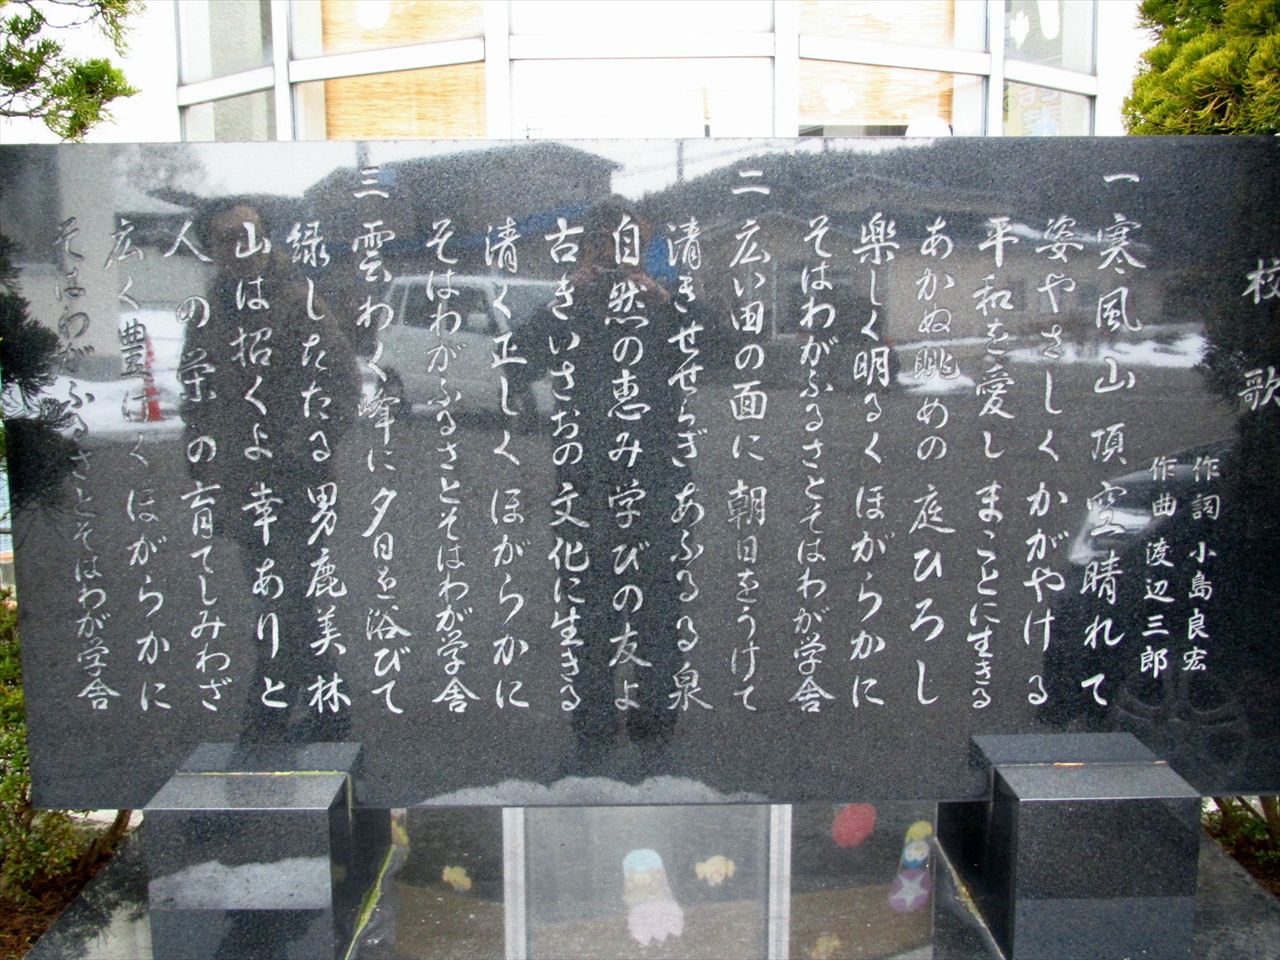 校歌
作詞 小島良宏
作曲 渡辺三郎
一 寒風山頂空晴れて
姿やさしくかがやける
平和を愛しまことに生きる
あかぬ眺めの庭ひろし
楽しく明るくほがらかに
そはわがふるさとそはわが学舎
二 広い田の面に朝日をうけて
清きせせらぎあふるる泉
自然の恵み学びの友よ
古きいさおの文化に生きる
清く正しくほがらかに
そはわがふるさとそはわが学舎
三 雲わく峰に夕日を浴びて
緑したたる男鹿美林
山は招くよ幸ありと
人の栄の育てしみわざ
広く豊けくほがらかに
そはわがふるさとそはわが学舎